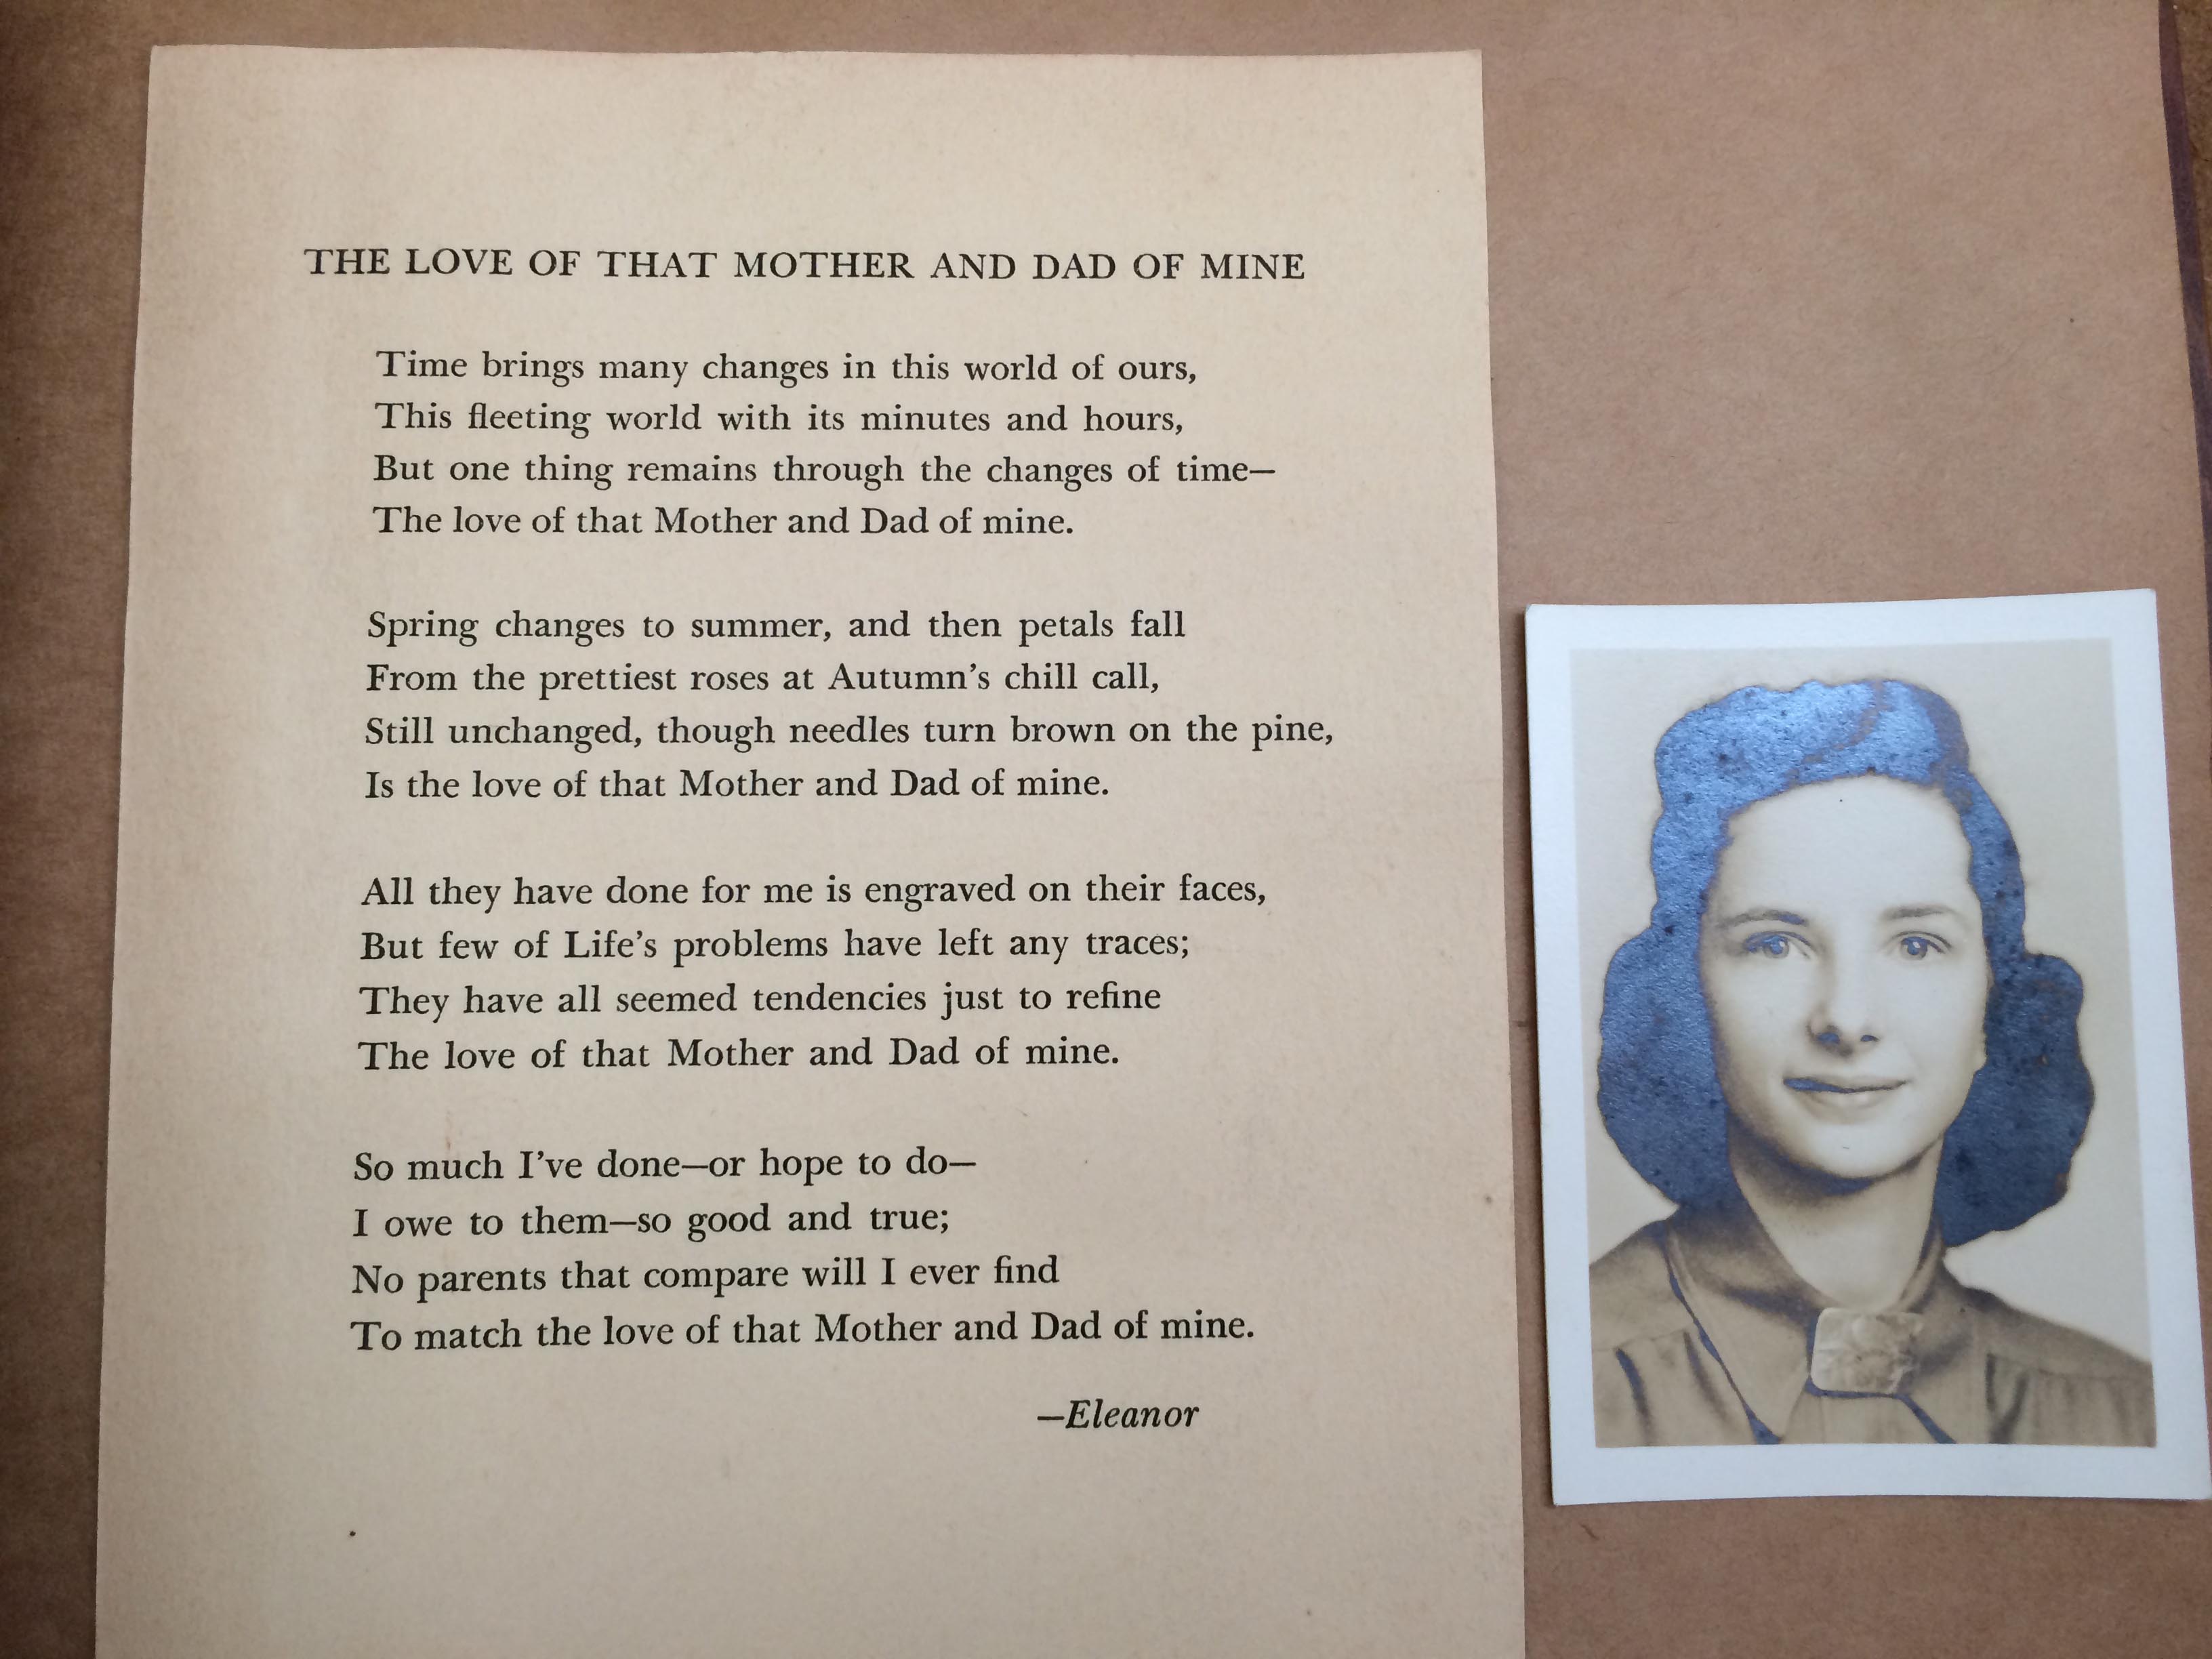 THE LOVE OF THAT MOTHER AND DAD OF MINE
Time brings many changes in this world of ours,
This fleeting world with its minutes and hours,
But one thing remains through the changes of time—
The love of that Mother and Dad of mine.
Spring changes to summer, and then petals fall
From the prettiest roses at Autumn's chill call,
Still unchanged, though needles turn brown on the pine,
Is the love of that Mother and Dad of mine.
All they have done for me is engraved on their faces,
But few of Life's problems have left any traces;
They have all seemed tendencies just to refine
The love of that Mother and Dad of mine.
So much I've done—or hope to do—
I owe to them—so good and true;
No parents that compare will I ever find
To match the love of that Mother and Dad of mine.
—Eleanor